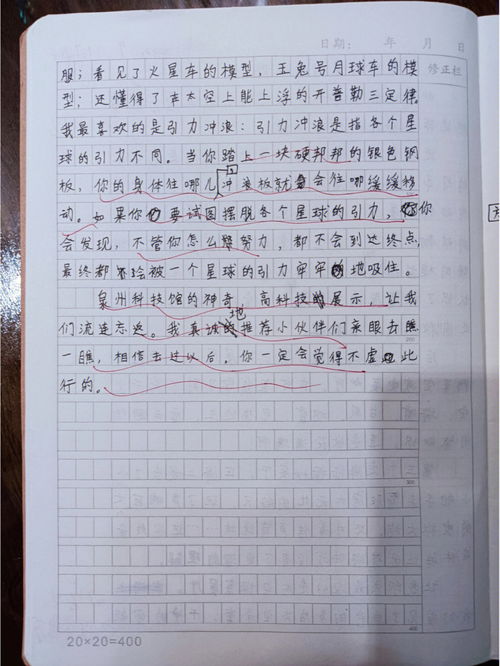 日期： 年 月 日
修正栏
服；看见了火星车的模型，玉兔号月球车的模
型；还懂得了在太空上能上浮的开普勒三定律。
我最喜欢的是引力冲浪：引力冲浪是指各个星
球的引力不同。当你踏上一块硬邦邦的银色钢
板，你的身体往哪儿冲浪板就会往哪缓缓移
动。如果你要试图摆脱各个星球的引力，你
会发现，不管你怎么努力，都不会到达终点，
最终都会被一个星球的引力牢牢地吸住。
泉州科技馆的神奇，高科技展示，让我
们流连忘返。我真诚地推荐小伙伴们亲眼去瞧
一瞧，相信去过以后，你一定会觉得不虚此
行的。
200
300
400
20×20=400